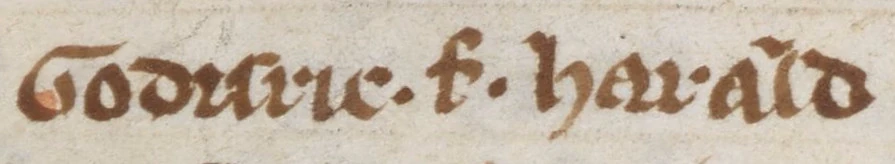 Godusric · f · harald